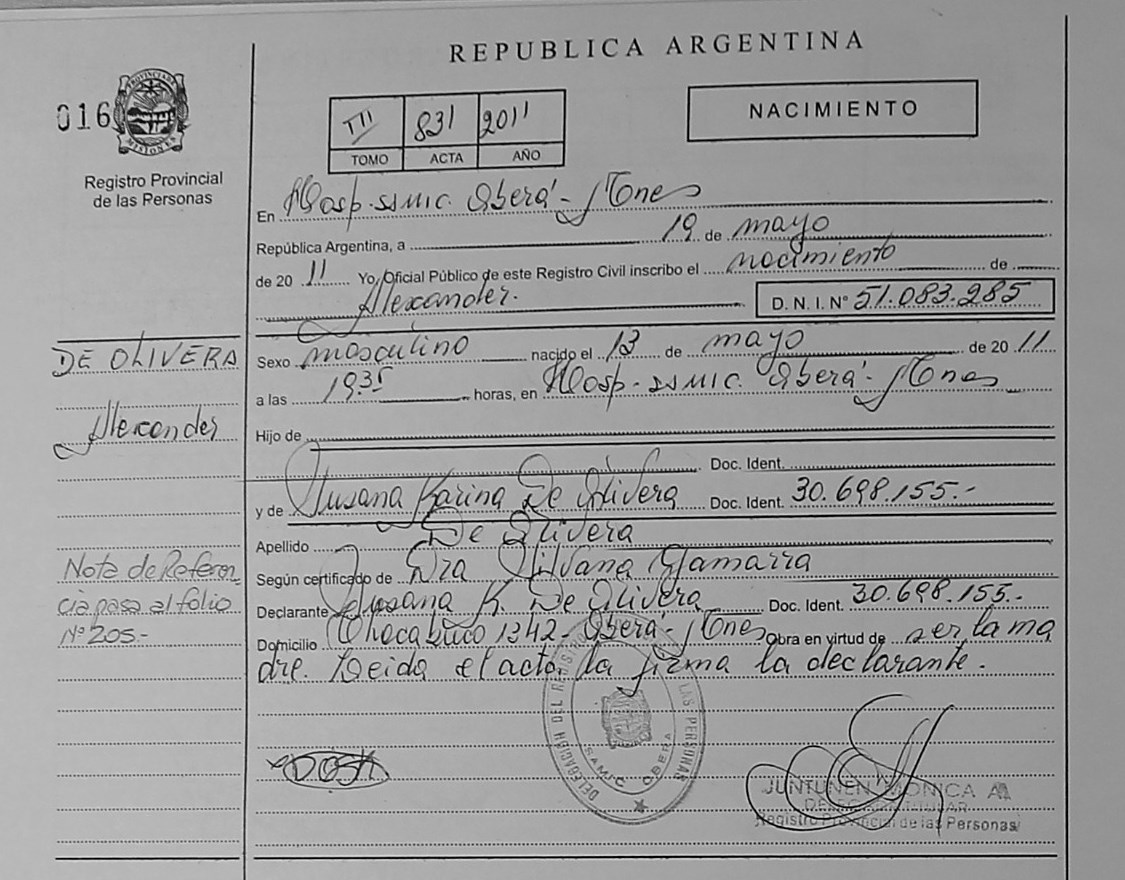 REPUBLICA ARGENTINA
016
PROVINCIA DE MISIONES
Registro Provincial
de las Personas
TII 831 2011
TOMO ACTA AÑO
NACIMIENTO
En Hosp. SAMIC. Oberá - Mnes
República Argentina, a 19 de mayo
de 2011 Yo, Oficial Público de este Registro Civil inscribo el nacimiento de
Alexander. D. N. I. Nº 51.083.285
DE OLIVERA
Alexander
Sexo masculino nacido el 13 de mayo de 2011
a las 19.35 horas, en Hosp. SAMIC. Oberá - Mnes
Hijo de
Doc. Ident.
y de Susana Karina De Olivera Doc. Ident. 30.698.155.-
Apellido De Olivera
Según certificado de Dra Silvana Gamarra
Declarante Susana K. De Olivera Doc. Ident. 30.698.155.-
Domicilio Chacabuco 1342 - Oberá - Mnes Obra en virtud de ser la ma
dre. Leida el acta, la firma la declarante.
Nota de Referen
cia pasa al folio
Nº 205.-
DELEGACIÓN DEL REGISTRO LAS PERSONAS
SAMIC OBERA
JUNTUNEN MONICA A.
Registro Provincial de las Personas